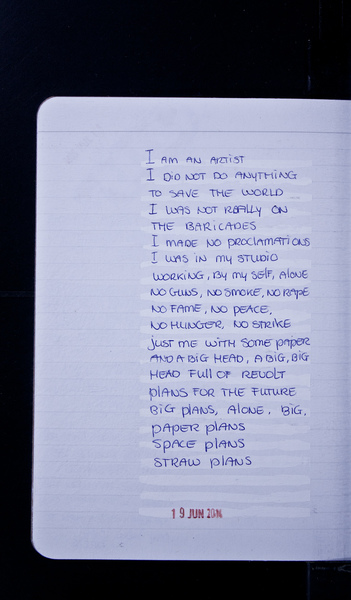 I AM AN ARTIST
I DID NOT DO ANYTHING
TO SAVE THE WORLD
I WAS NOT REALLY ON
THE BARICADES
I MADE NO PROCLAMATIONS
I WAS IN MY STUDIO
WORKING, BY MY SELF, ALONE
NO GUNS, NO SMOKE, NO RAPE
NO FAME, NO PEACE,
NO HUNGER, NO STRIKE
JUST ME WITH SOME PAPER
AND A BIG HEAD, A BIG, BIG
HEAD FULL OF REVOLT
PLANS FOR THE FUTURE
BIG PLANS, ALONE, BIG,
PAPER PLANS
SPACE PLANS
STRAW PLANS
19 JUN